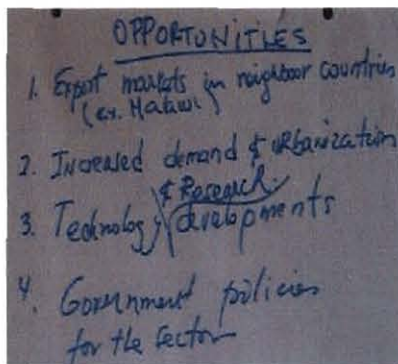 OPPORTUNITIES
1. Export markets in neighbour countries
(ex. Malawi)
2. Increased demand & urbanization
& Research
3. Technology developments
4. Government policies
for the sector